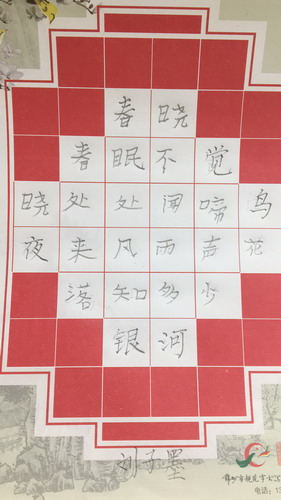 春晓
春眠不觉
晓处处闻啼鸟
夜来风雨声花
落知多少
银河
刘子墨
电话:1